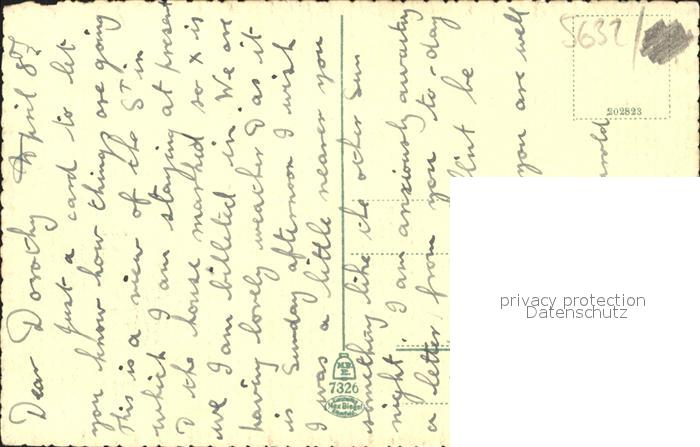 Dear Dorothy April 8th
Just a card to let
you know how things are going
This is a view of the St in
which I am staying at present
& the house marked so x is
we I am billeted in. We are
having lovely weather & as it
is Sunday afternoon I wish
I was a little nearer you
something like the other Sun
night. I am anxiously awaiting
a letter from you to-day
be
you are well
5632
202823
M.B.
E.
7326
Max Biegel
privacy protection
Datenschutz